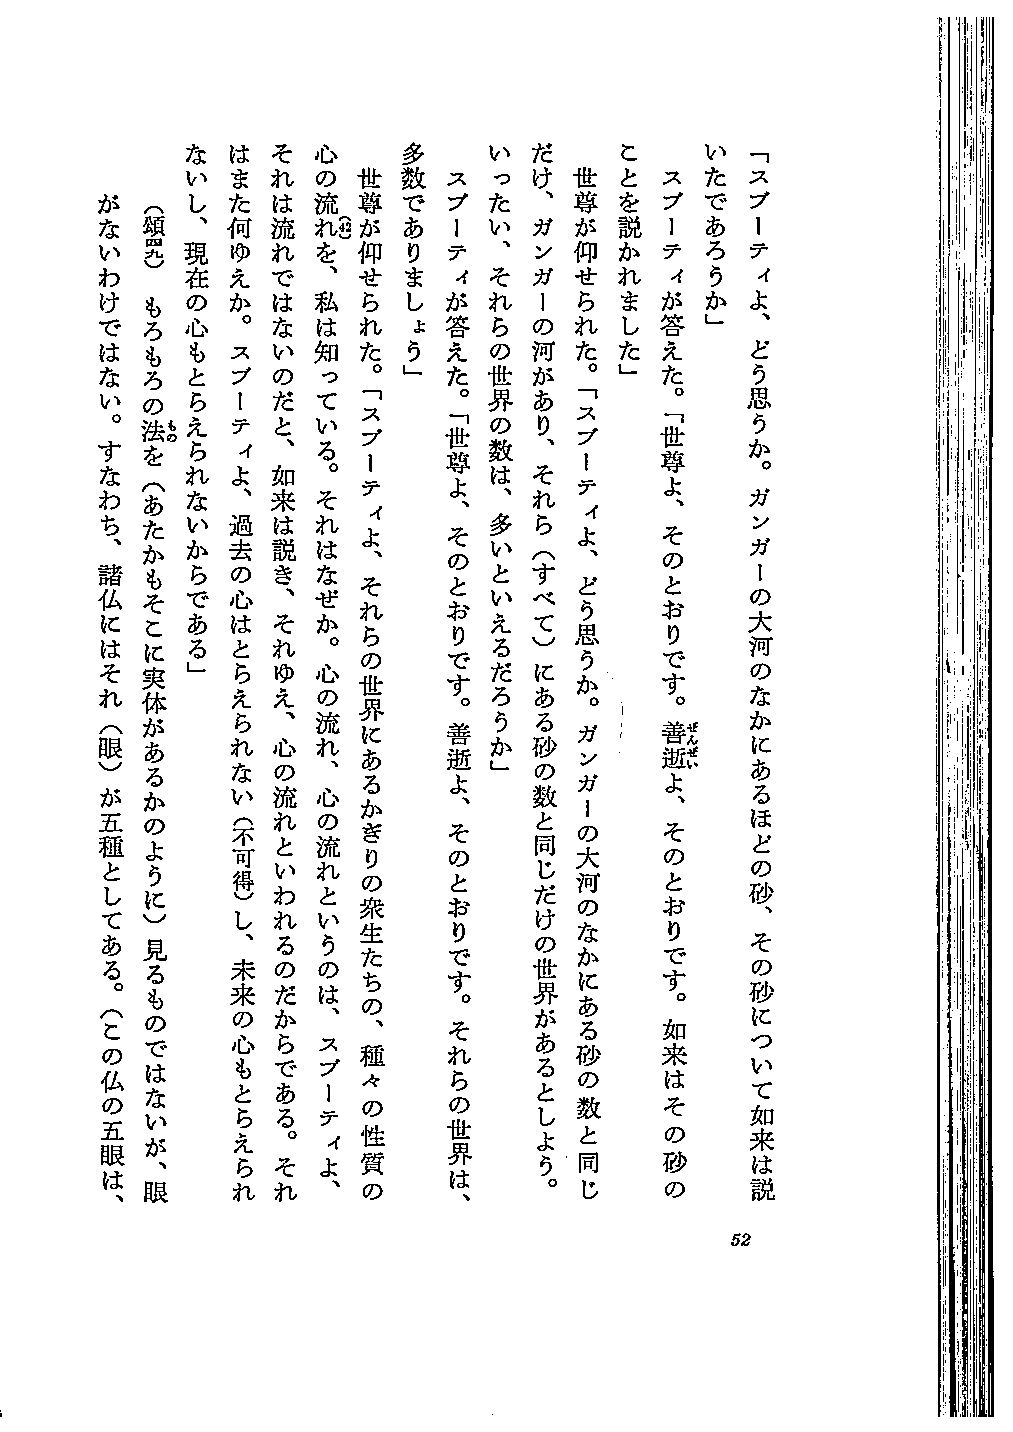 「スブーティよ、どう思うか。ガンガーの大河のなかにあるほどの砂、その砂について如来は説
いたであろうか」
スブーティが答えた。「世尊よ、そのとおりです。善逝よ、そのとおりです。如来はその砂の
ぜんぜい
ことを説かれました」
世尊が仰せられた。「スブーティよ、どう思うか。ガンガーの大河のなかにある砂の数と同じ
だけ、ガンガーの河があり、それら（すべて）にある砂の数と同じだけの世界があるとしよう。
いったい、それらの世界の数は、多いといえるだろうか」
スブーティが答えた。「世尊よ、そのとおりです。善逝よ、そのとおりです。それらの世界は、
多数でありましょう」
世尊が仰せられた。「スブーティよ、それらの世界にあるかぎりの衆生たちの、種々の性質の
心の流れを、私は知っている。それはなぜか。心の流れ、心の流れというのは、スブーティよ、
(42)
それは流れではないのだと、如来は説き、それゆえ、心の流れといわれるのだからである。それ
はまた何ゆえか。スブーティよ、過去の心はとらえられない（不可得）し、未来の心もとらえられ
ないし、現在の心もとらえられないからである」
（頌四九）　もろもろの法を（あたかもそこに実体があるかのように）見るものではないが、眼
もの
がないわけではない。すなわち、諸仏にはそれ（眼）が五種としてある。（この仏の五眼は、
52